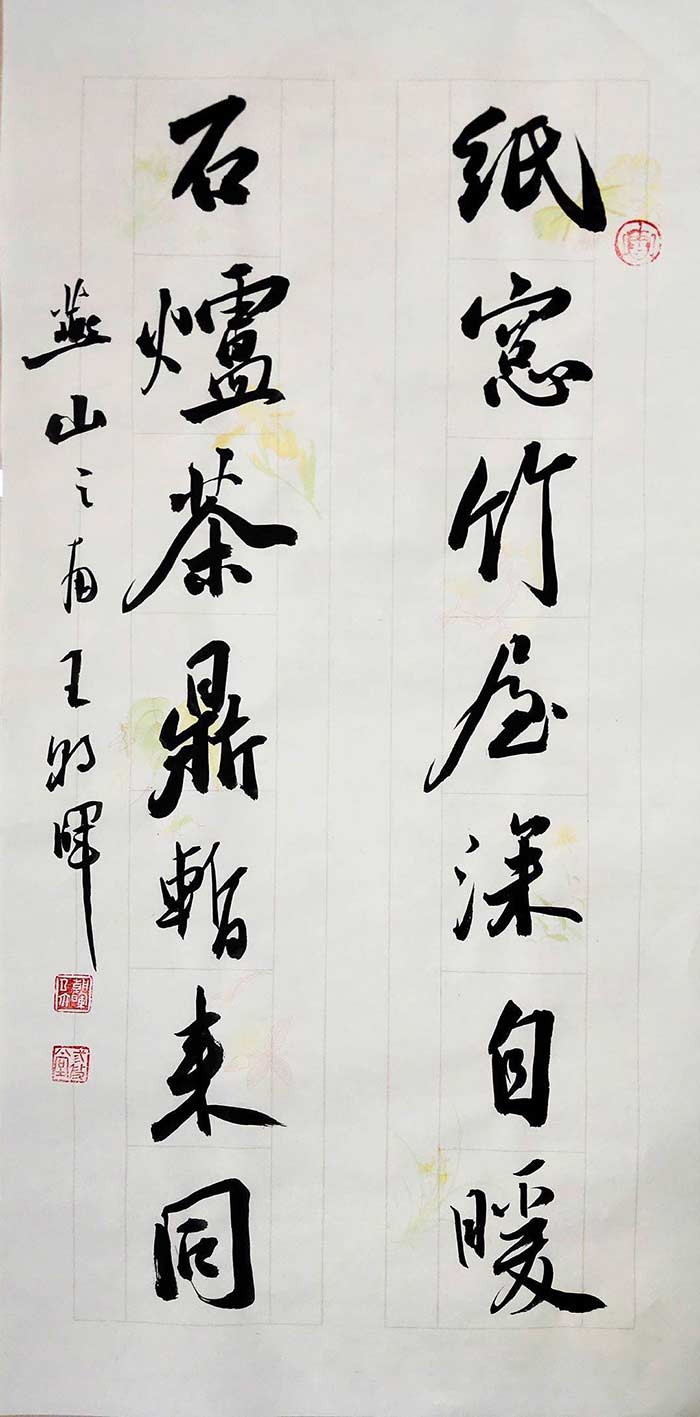 纸窓竹屋深自暖
石爐茶鼎暫来同
燕山之南王朝暉